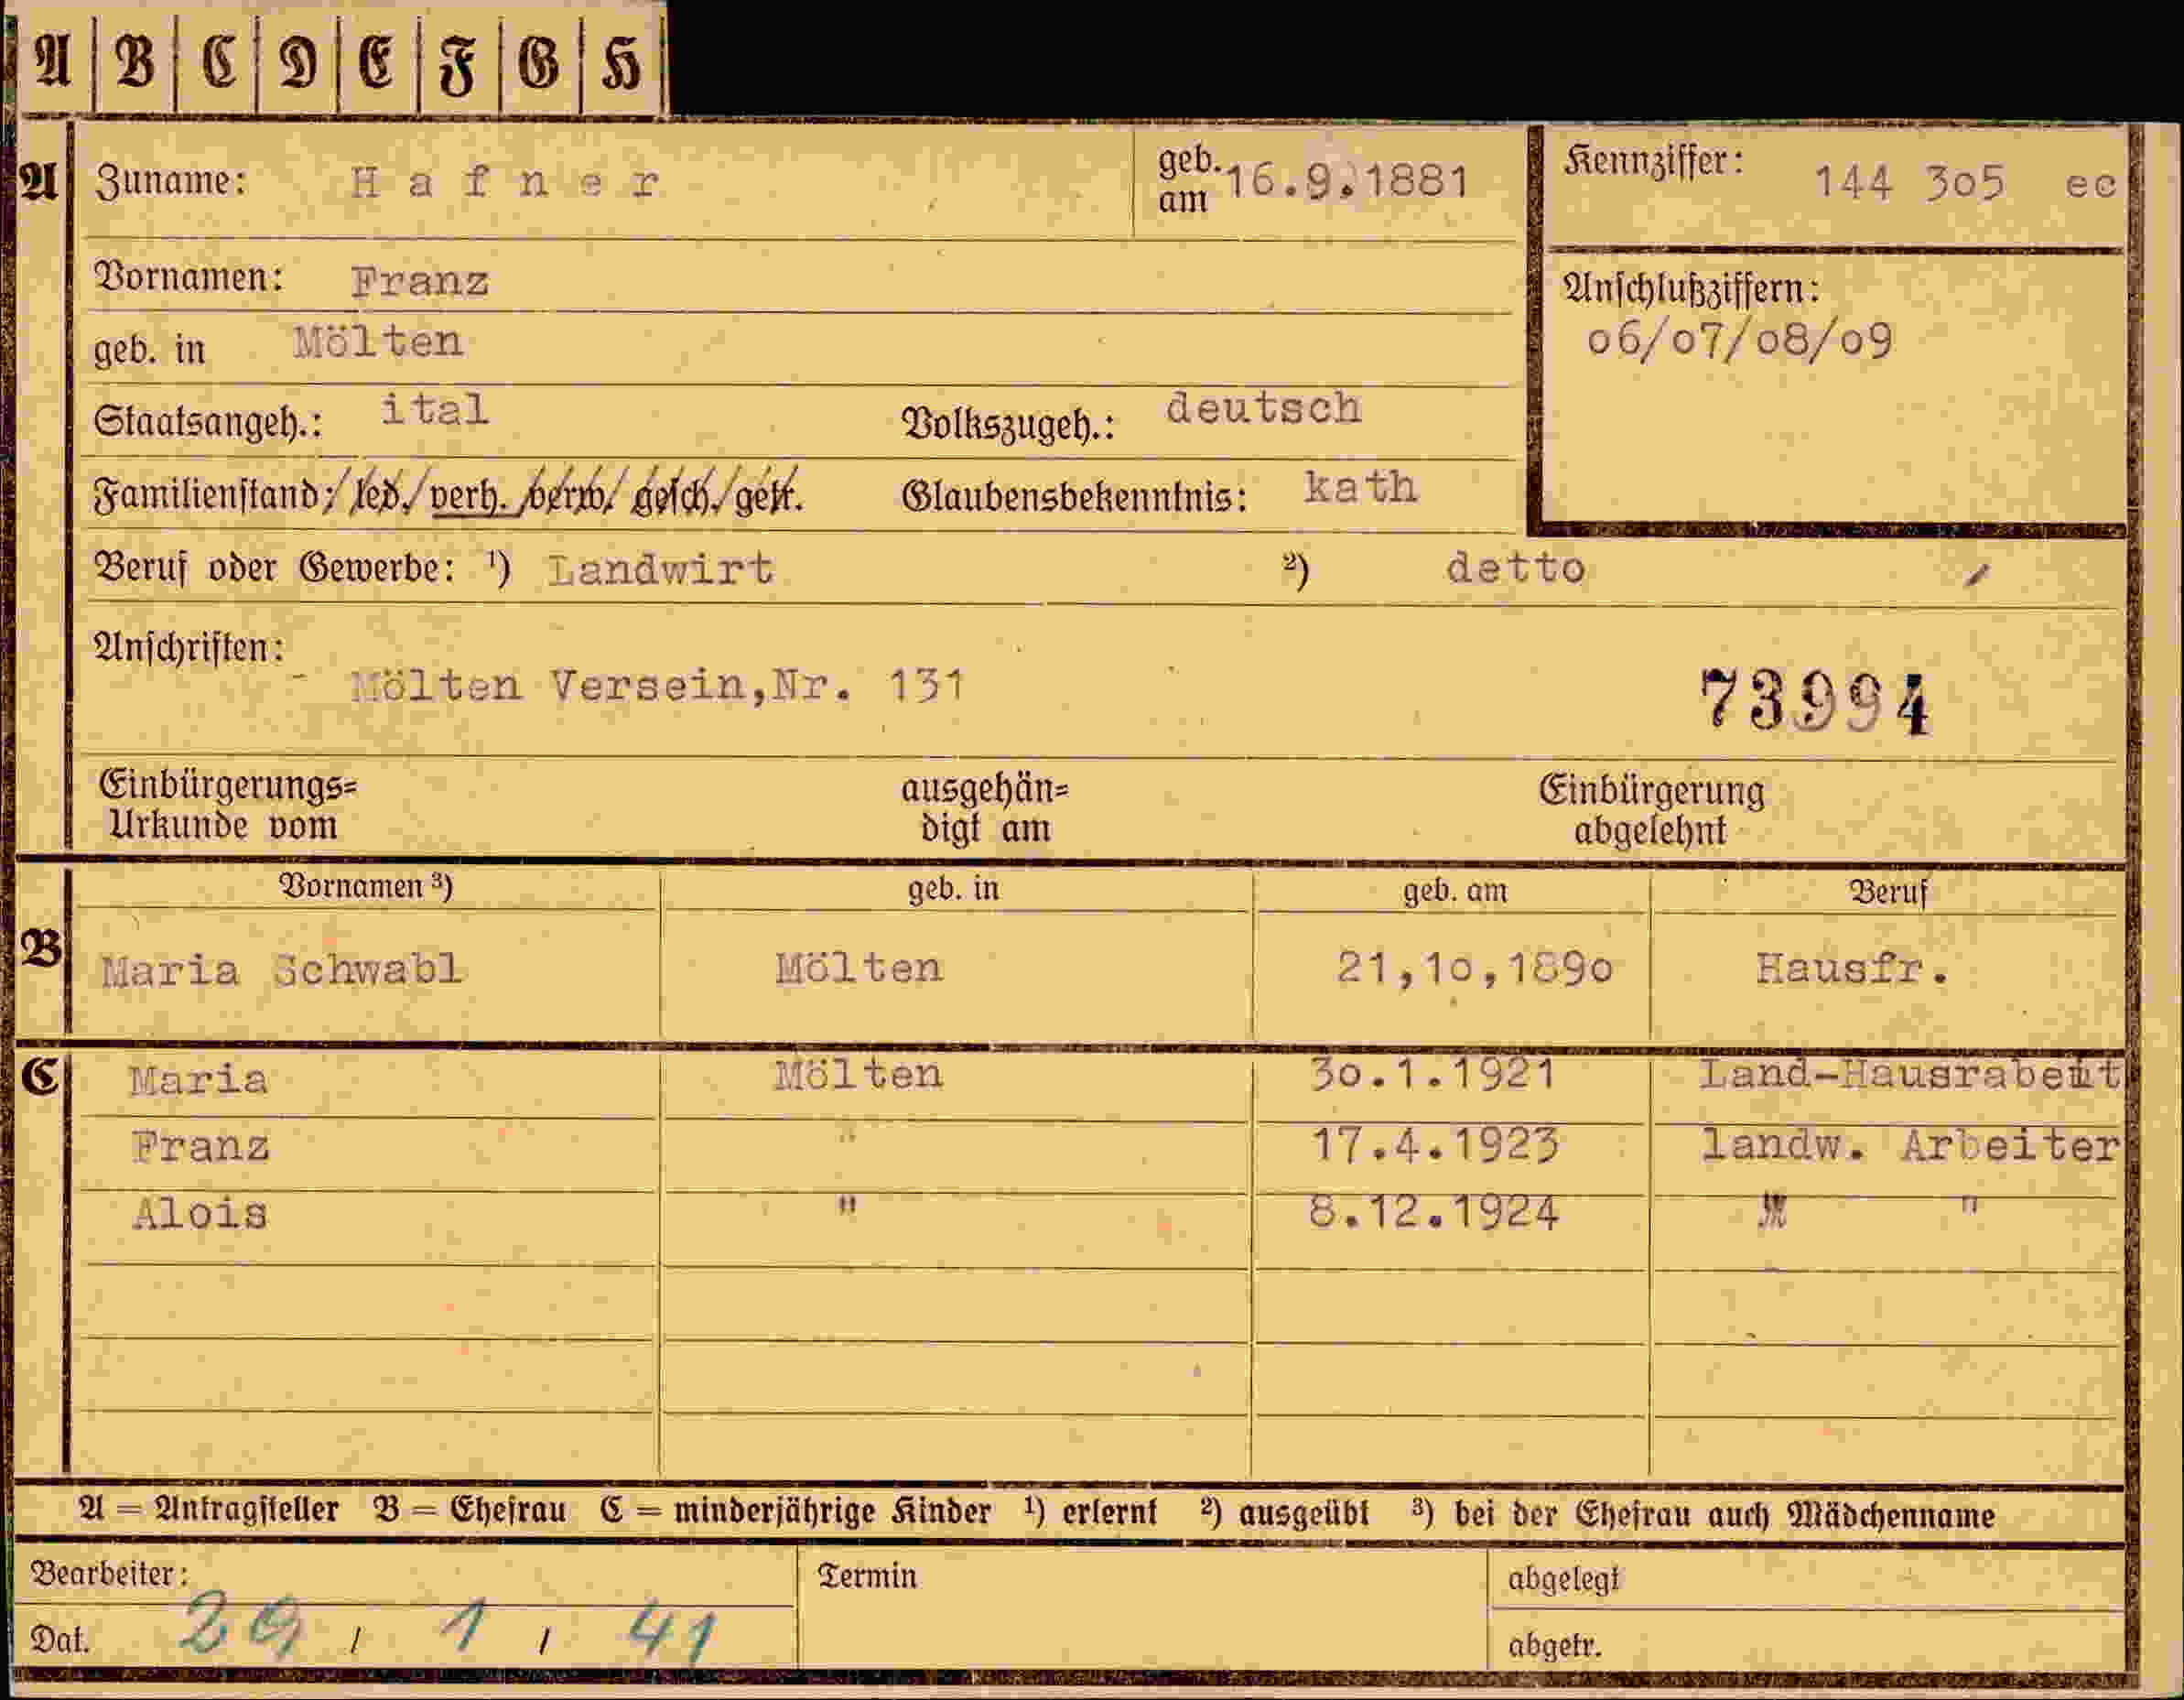 A B C D E F G H
A Zuname: Hafner geb. am 16.9.1881 Kennziffer: 144 3o5 ec
Vornamen: Franz
Anschlußziffern:
geb. in Mölten o6/o7/o8/o9
Staatsangeh.: ital Volkszugeh.: deutsch
Familienstand: led./verh./verw./gesch./getr. Glaubensbekenntnis: kath
Beruf oder Gewerbe: ¹) Landwirt ²) detto
Anschriften:
Mölten Versein,Nr. 131 73994
Einbürgerungs= ausgehän= Einbürgerung
Urkunde vom digt am abgelehnt
Vornamen ³) geb. in geb. am Beruf
B Maria Schwabl Mölten 21,1o,189o Hausfr.
C Maria Mölten 3o.1.1921 Land-Hausrabeit
Franz " 17.4.1923 landw. Arbeiter
Alois " 8.12.1924 " "
A = Antragsteller B = Ehefrau C = minderjährige Kinder ¹) erlernt ²) ausgeübt ³) bei der Ehefrau auch Mädchenname
Bearbeiter: Termin abgelegt
Dat. 29 / 1 / 41 abgetr.